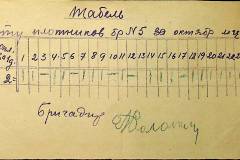 Табель
ту плотников бр №5 за октябрь м-ц
1 2 3 4 5 6 7 8 9 10 11 12 13 14 15 16 17 18 19 20 21 22
2=
Бригадир